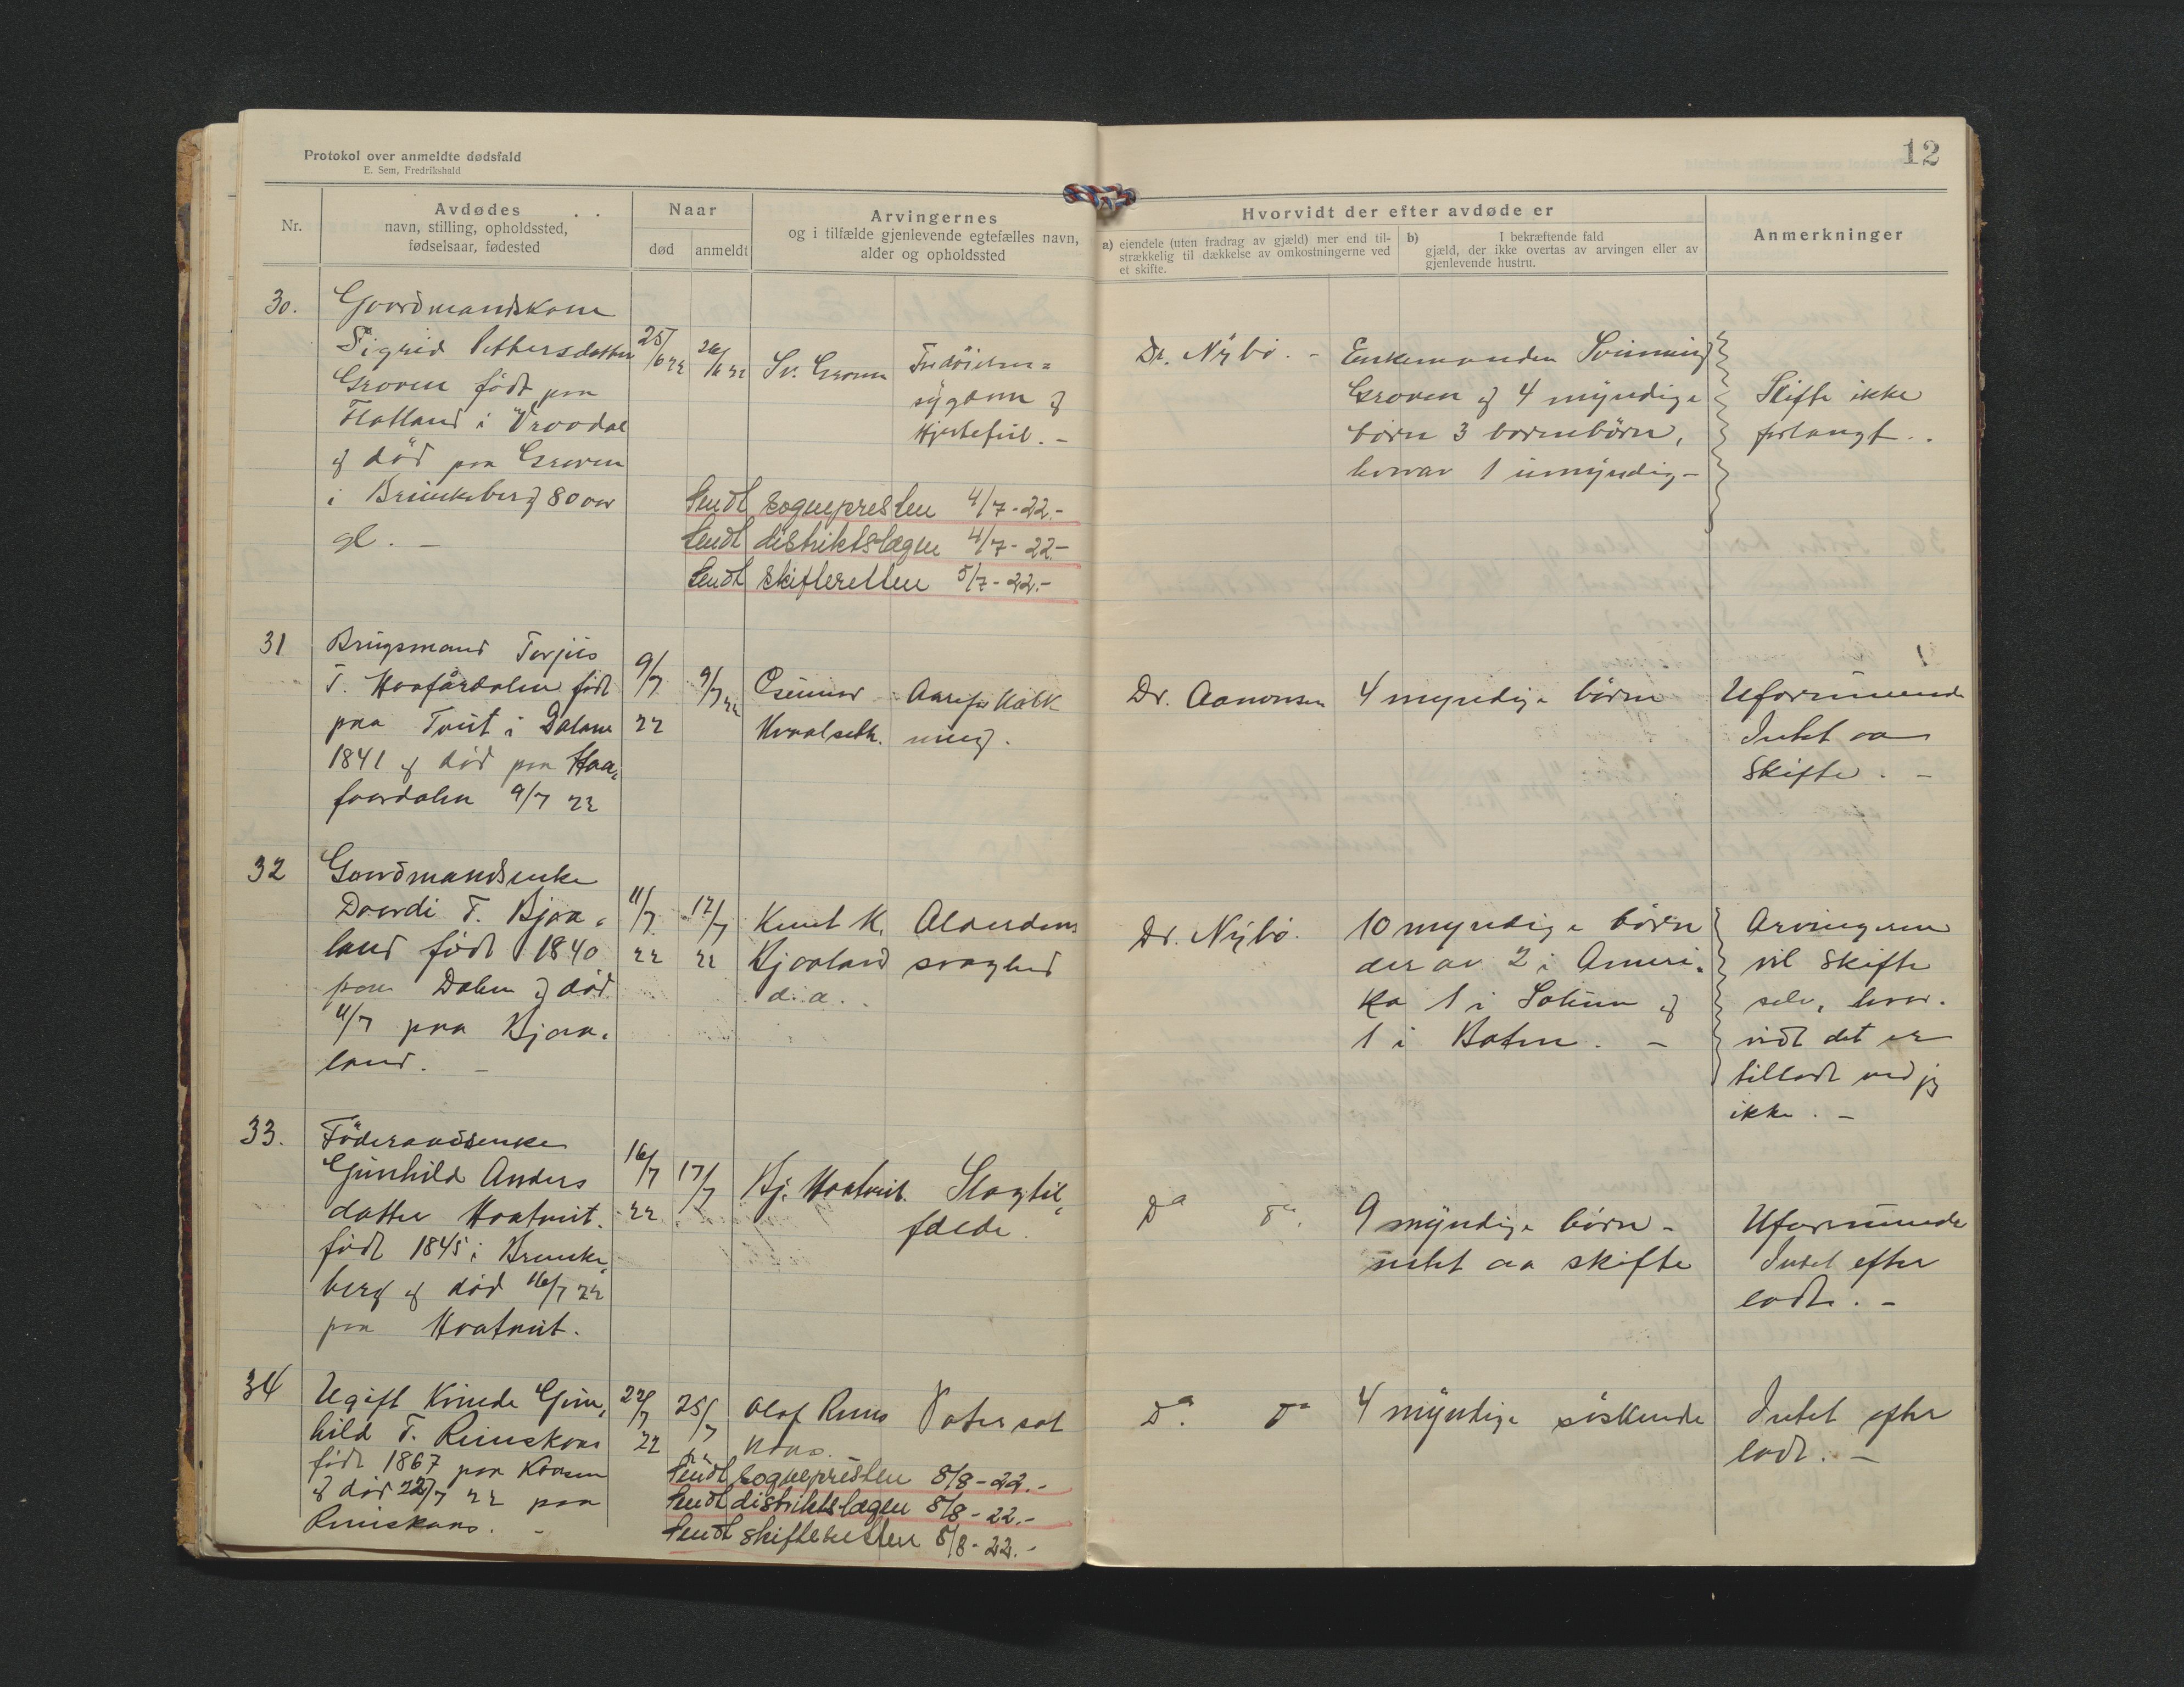 Protokol over anmeldte dødsfald
E. Sem, Fredrikshald
12
Nr.
Avdødes
navn, stilling, opholdssted,
fødselsaar, fødested
Naar
død
anmeldt
Arvingernes
og i tilfælde gjenlevende egtefælles navn,
alder og opholdssted
Hvorvidt der efter avdøde er
a) eiendele (uten fradrag av gjæld) mer end til-
strækkelig til dækkelse av omkostningerne ved
et skifte.
b) I bekræftende fald
gjæld, der ikke overtas av arvingen eller av
gjenlevende hustru.
Anmerkninger
30.
Gaardmandskone
Sigrid Pettersdatter
Groven født paa
Flatland i Vraadal
og død paa Groven
i Brunkeberg 80 aar
gl. -
25/6 22
26/6 22
Sv. Groven
sygdom og
Hjertefeil. -
Dr. Nybö. -
Enkemanden Svinung
Groven og 4 myndige
börn 3 barnebörn,
hvorav 1 umyndig -
Skifte ikke
forlangt. .
Sendt sognepresten 4/7-22.-
Sendt distriktslægen 4/7-22.-
Sendt skifteretten 5/7-22.-
31
Brugsmand Torjus
T. Haafårdalen født
paa Tveit i Dalane
1841 og död paa Haa-
faardalen 9/7 22
9/7
22
9/7 22
Aareforkalk
ning.
Dr. Aanonsen
4 myndige börn
Uformuende
Intet aa
Skifte. -
32
Gaardmandsenke
Daardi T. Bjaa-
land født 1840
paa Dalen og död
11/7 paa Bjaa-
land. -
11/7
22
12/7
22
Knut K.
Bjaaland
d. a.
Alderdoms
svaghed
Dr. Nybö.
10 myndige börn
der av 2 i Ameri-
ka 1 i Solum og
1 i Botne. -
Arvingerne
vil Skifte
selv, hvor-
vidt det er
tilladt ved jeg
ikke. -
33.
Föderaadsenke
Gunhild Anders
datter Haatveit.
født 1845 i Brunke-
berg og död 16/7 22
paa Haatveit.
16/7
22
17/7
Bj. Haatveit.
Slagtil-
fælde.
Da Do.
9 myndige börn -
intet aa skifte
Uformuende
Intet efter
ladt. -
34
Ugift Kvinde Gun-
hild T. Rimskaas
født 1867 paa Kaasen
og död 22/7 22 paa
Rimskaas. -
22/7
22
25/7
22
Olaf Rims
kaas.
Vatersot
Do. Do
4 myndige söskende
Intet efter
ladt. -
Sendt sognepresten 8/8-22.-
Sendt distriktslægen 8/8-22.-
Sendt skifteretten 8/8-22.-